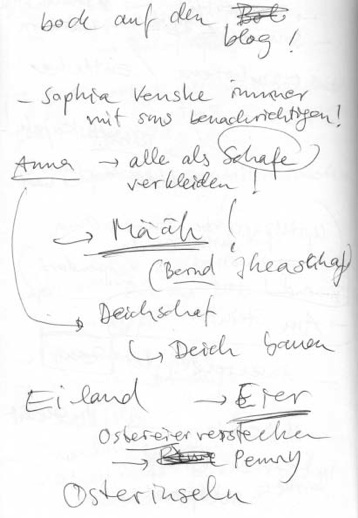 bock auf den
blog!
- Sophia Venske immer
mit sms benachrichtigen!
Anna → alle als Schafe
verkleiden!
→ Määh!
(Bernd
Deichschaf
→ Deich bauen
Eiland → Eier
Ostereier verstecken
→ Penny
Osterinseln